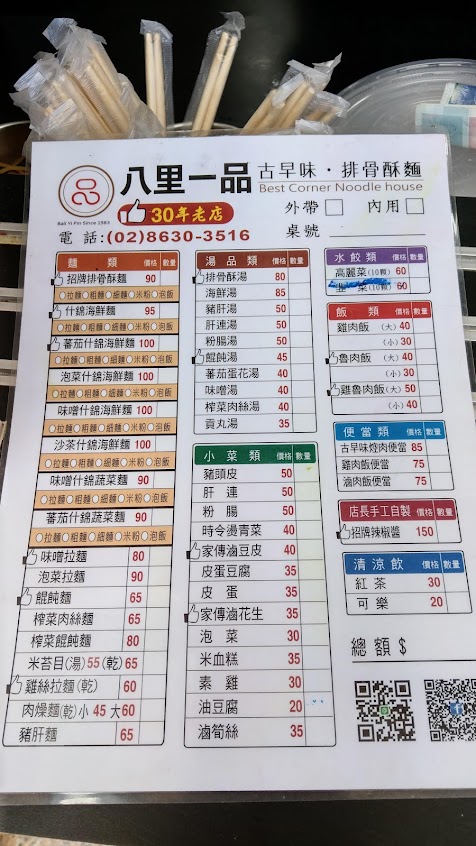 八里一品
古早味・排骨酥麵
Best Corner Noodle house
Bali Yi Pin Since 1983
30年老店
外帶 □ 內用 □
電話:(02)8630-3516
桌號
麵類 價格 數量
招牌排骨酥麵 90
○拉麵○粗麵○細麵○米粉○泡飯
什錦海鮮麵 95
○拉麵○粗麵○細麵○米粉○泡飯
蕃茄什錦海鮮麵 100
○拉麵○粗麵○細麵○米粉○泡飯
泡菜什錦海鮮麵 100
○拉麵○粗麵○細麵○米粉○泡飯
味噌什錦海鮮麵 100
○拉麵○粗麵○細麵○米粉○泡飯
沙茶什錦海鮮麵 100
○拉麵○粗麵○細麵○米粉○泡飯
味噌什錦蔬菜麵 90
○拉麵○粗麵○細麵○米粉○泡飯
蕃茄什錦蔬菜麵 90
○拉麵○粗麵○細麵○米粉○泡飯
味噌拉麵 80
泡菜拉麵 90
餛飩麵 65
榨菜肉絲麵 65
榨菜餛飩麵 80
米苔目(湯)55(乾) 65
雞絲拉麵(乾) 60
肉燥麵(乾)小 45 大60
豬肝麵 65
湯品類 價格 數量
排骨酥湯 80
海鮮湯 85
豬肝湯 50
肝連湯 50
粉腸湯 50
餛飩湯 45
蕃茄蛋花湯 40
味噌湯 40
榨菜肉絲湯 40
貢丸湯 35
小菜類 價格 數量
豬頭皮 50
肝連 50
粉腸 50
時令燙青菜 40
家傳滷豆皮 40
皮蛋豆腐 35
皮蛋 35
家傳滷花生 35
泡菜 30
米血糕 35
素雞 30
油豆腐 20
滷筍絲 35
水餃類 價格 數量
高麗菜(10顆) 60
韭菜(10顆) 60
飯類 價格 數量
雞肉飯 (大) 40
(小) 30
魯肉飯 (大) 40
(小) 30
雞魯肉飯(大) 50
(小) 40
便當類 價格 數量
古早味焢肉便當 85
雞肉飯便當 75
滷肉飯便當 75
店長手工自製 價格 數量
招牌辣椒醬 150
清涼飲 價格 數量
紅茶 30
可樂 20
總額 $